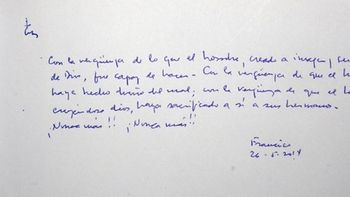 Con la vergüenza de lo que el hombre, creado a imagen y se
de Dios, fue capaz de hacer. Con la vergüenza de que el h
haya hecho dueño del mal; con la vergüenza de que el h
creyéndose dios, haya sacrificado a sí a sus hermanos.
¡Nunca más!! ¡Nunca más!!
Francisco
26-5-2014